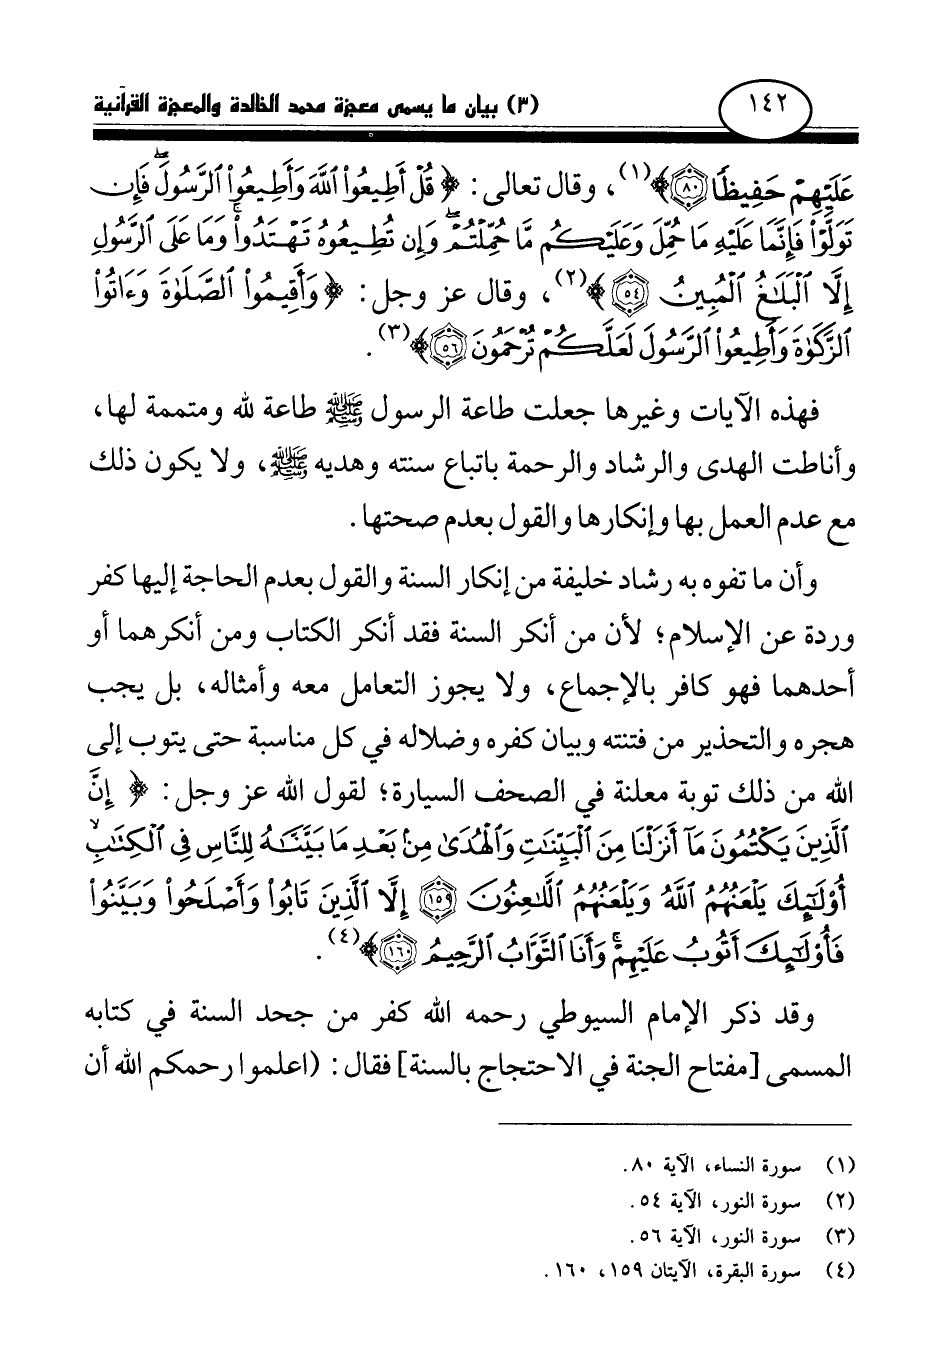 ١٤٢
(٣) بيان ما يسمى معجزة محمد الخالدة والمعجزة القرآنية
عَلَيْهِمْ حَفِيظًا ۝٨٠﴾(١)، وقال تعالى: ﴿قُلْ أَطِيعُوا۟ ٱللَّهَ وَأَطِيعُوا۟ ٱلرَّسُولَ ۖ فَإِن
تَوَلَّوْا۟ فَإِنَّمَا عَلَيْهِ مَا حُمِّلَ وَعَلَيْكُم مَّا حُمِّلْتُمْ ۖ وَإِن تُطِيعُوهُ تَهْتَدُوا۟ ۚ وَمَا عَلَى ٱلرَّسُولِ
إِلَّا ٱلْبَلَٰغُ ٱلْمُبِينُ ۝٥٤﴾(٢)، وقال عز وجل: ﴿وَأَقِيمُوا۟ ٱلصَّلَوٰةَ وَءَاتُوا۟
ٱلزَّكَوٰةَ وَأَطِيعُوا۟ ٱلرَّسُولَ لَعَلَّكُمْ تُرْحَمُونَ ۝٥٦﴾(٣).
فهذه الآيات وغيرها جعلت طاعة الرسول ﷺ طاعة لله ومتممة لها،
وأناطت الهدى والرشاد والرحمة باتباع سنته وهديه ﷺ، ولا يكون ذلك
مع عدم العمل بها وإنكارها والقول بعدم صحتها.
وأن ما تفوه به رشاد خليفة من إنكار السنة والقول بعدم الحاجة إليها كفر
وردة عن الإسلام؛ لأن من أنكر السنة فقد أنكر الكتاب ومن أنكرهما أو
أحدهما فهو كافر بالإجماع، ولا يجوز التعامل معه وأمثاله، بل يجب
هجره والتحذير من فتنته وبيان كفره وضلاله في كل مناسبة حتى يتوب إلى
الله من ذلك توبة معلنة في الصحف السيارة؛ لقول الله عز وجل: ﴿إِنَّ
ٱلَّذِينَ يَكْتُمُونَ مَآ أَنزَلْنَا مِنَ ٱلْبَيِّنَٰتِ وَٱلْهُدَىٰ مِنۢ بَعْدِ مَا بَيَّنَّٰهُ لِلنَّاسِ فِى ٱلْكِتَٰبِ ۙ
أُو۟لَٰٓئِكَ يَلْعَنُهُمُ ٱللَّهُ وَيَلْعَنُهُمُ ٱللَّٰعِنُونَ ۝١٥٩ إِلَّا ٱلَّذِينَ تَابُوا۟ وَأَصْلَحُوا۟ وَبَيَّنُوا۟
فَأُو۟لَٰٓئِكَ أَتُوبُ عَلَيْهِمْ ۚ وَأَنَا ٱلتَّوَّابُ ٱلرَّحِيمُ ۝١٦٠﴾(٤).
وقد ذكر الإمام السيوطي رحمه الله كفر من جحد السنة في كتابه
المسمى [مفتاح الجنة في الاحتجاج بالسنة] فقال: (اعلموا رحمكم الله أن
(١) سورة النساء، الآية ٨٠.
(٢) سورة النور، الآية ٥٤.
(٣) سورة النور، الآية ٥٦.
(٤) سورة البقرة، الآيتان ١٥٩، ١٦٠.